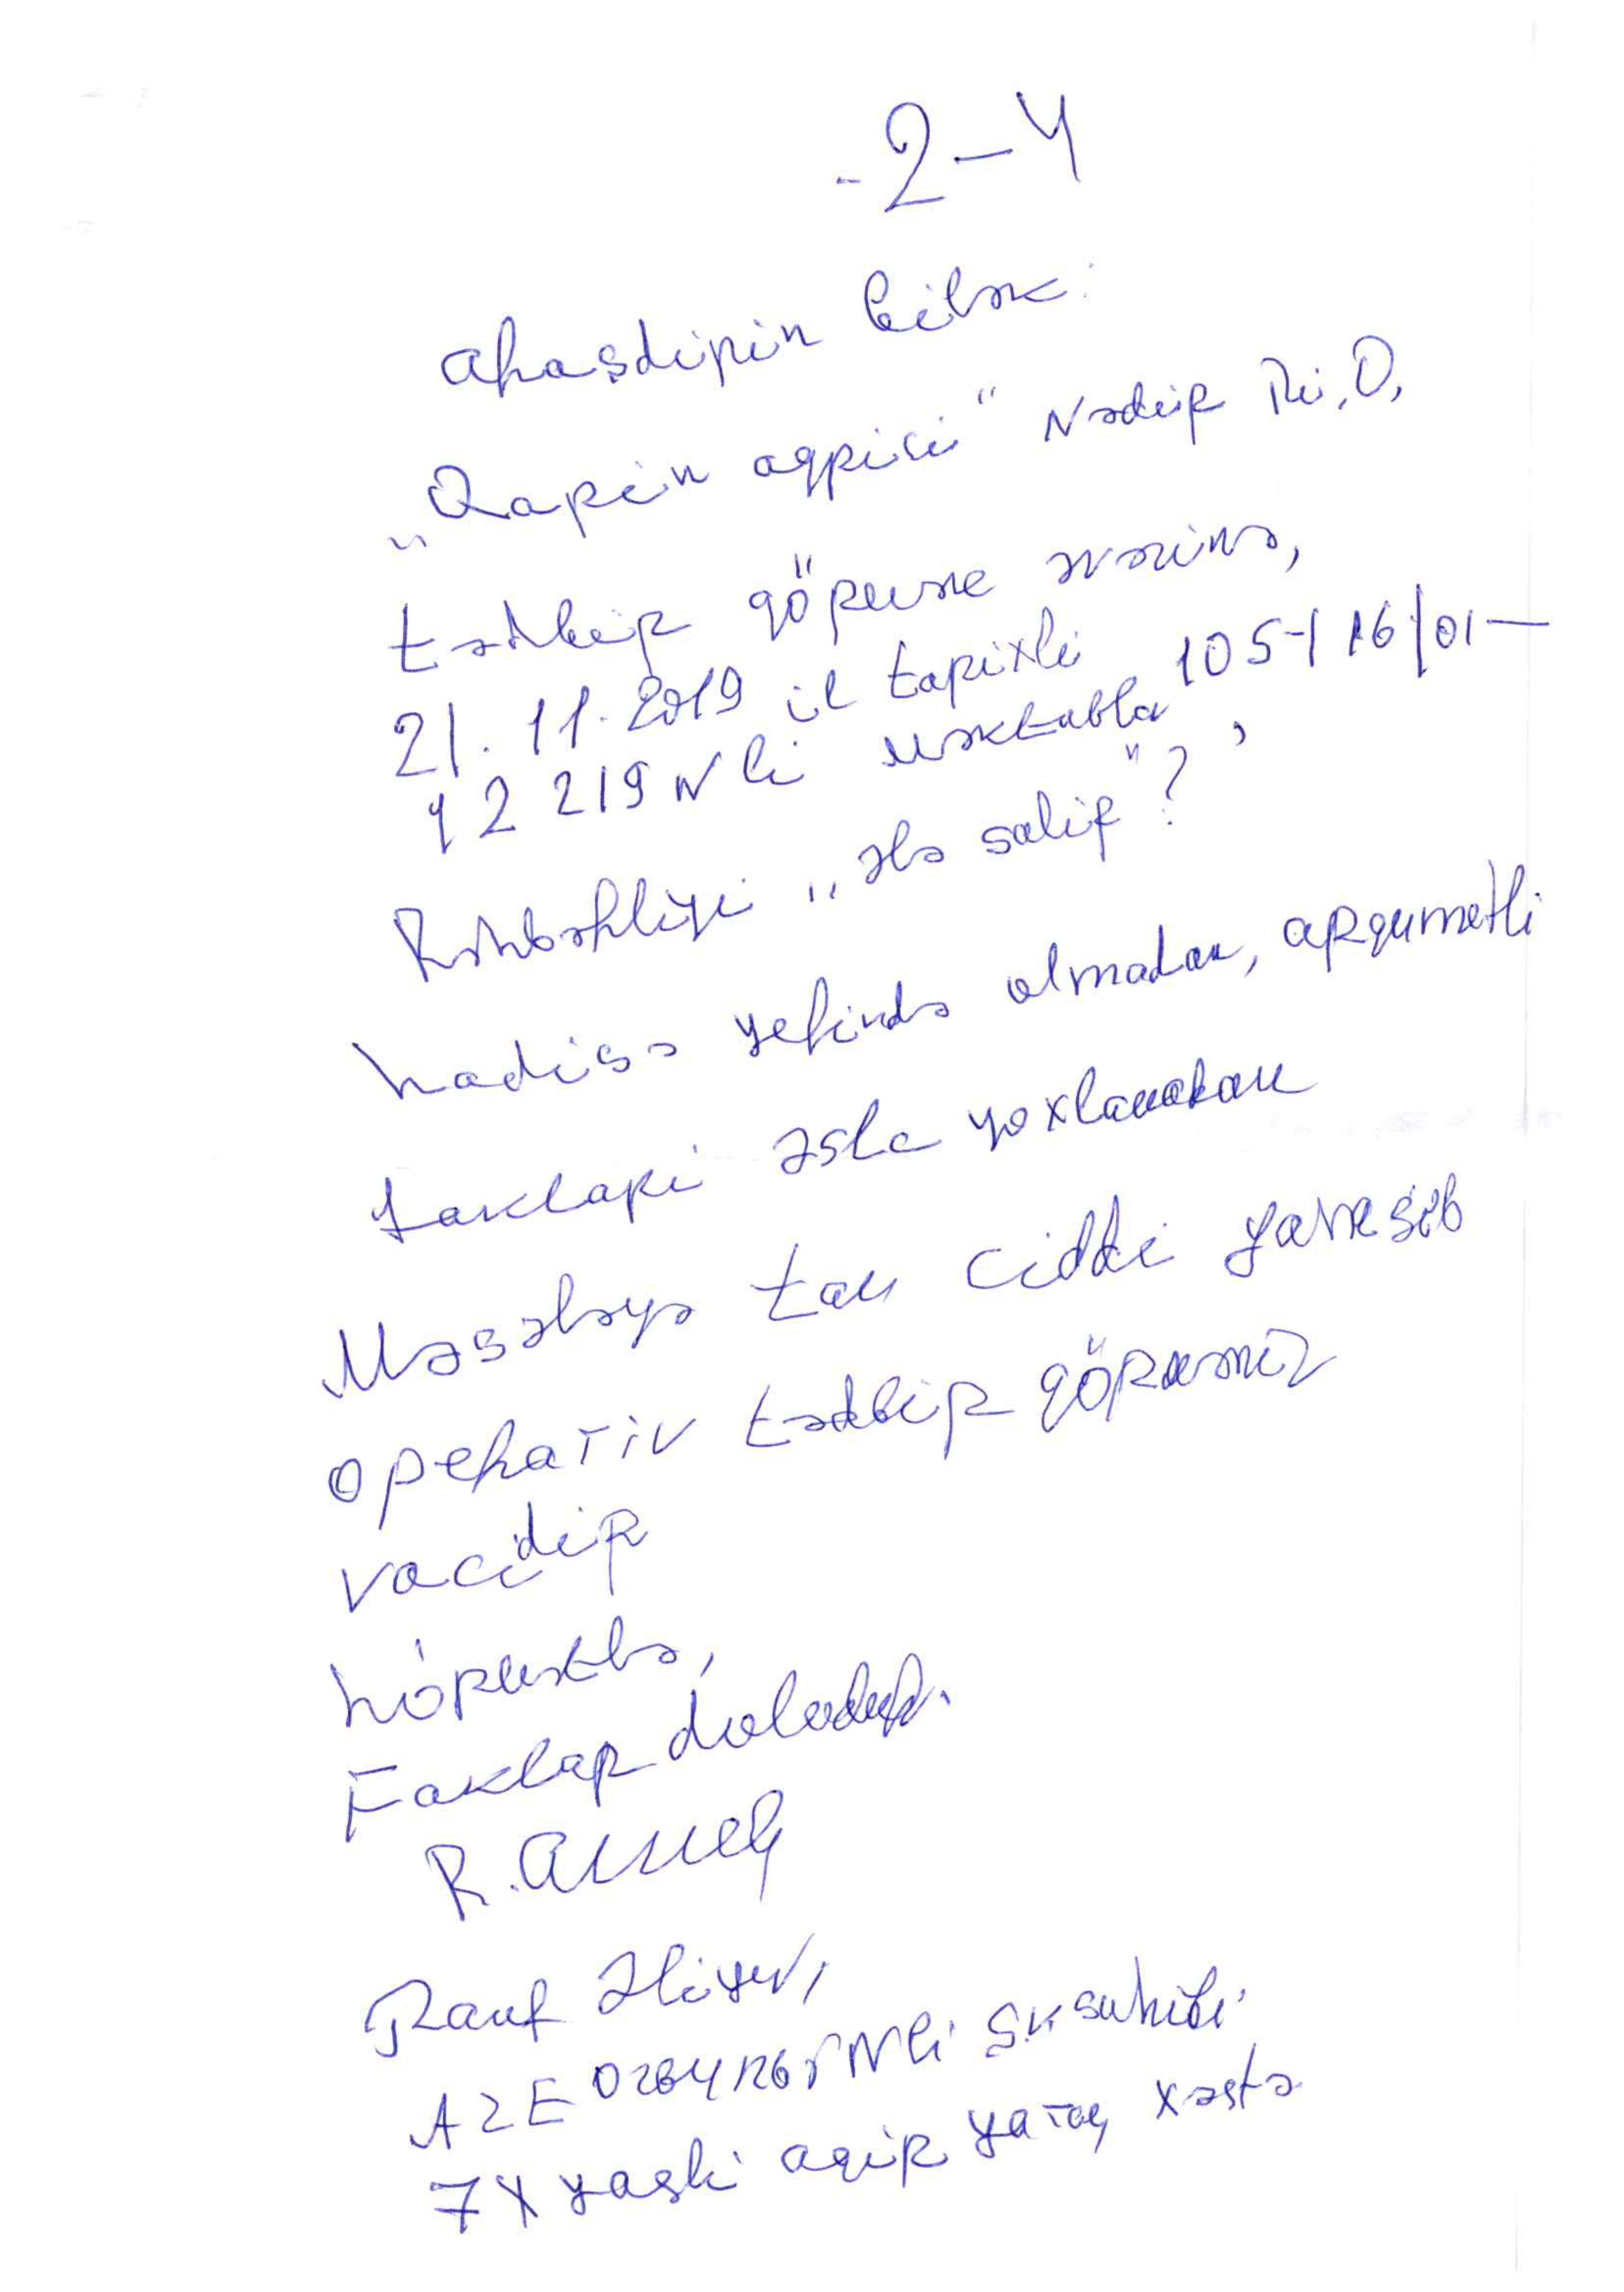 -2-4
araşdirin bilək:
„Qarin ağrisi“ Nədir Ri.O,
tədbir görmək əvəzinə,
21.11.2019 il tarixli 105-116/01-
12219 N li məktubla,
Rəhbərliyi „ələ salir“?
hadisə yerində olmadan, argumetli
faktlari əsla yoxlamadan
Məsələyə tam ciddi yanaşib
operativ tədbir görməniz
vacidir
hörmətlə,
Faktlar doludur.
Rauf Əliyev,
AZE 02641265 N li ŞV sahibi
7X yaşli ağir yataq xəstə